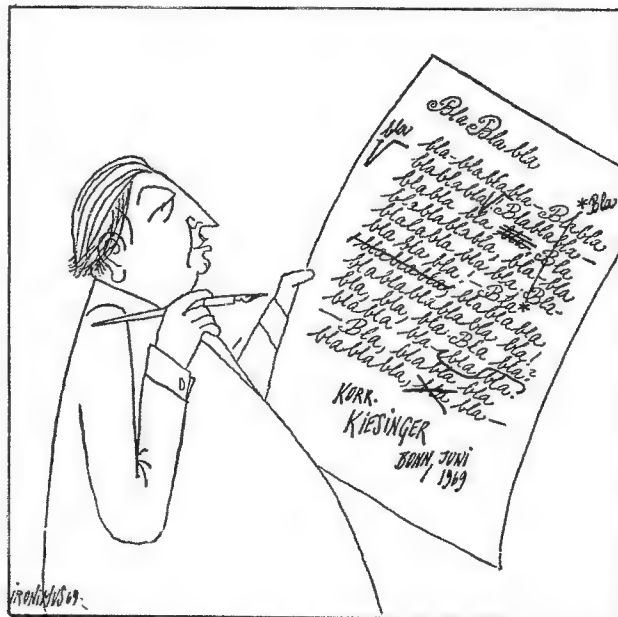 Bla Bla bla
bla
bla-blablabla-Bla bla
*Bla
blablabla! Blablabla-
bla bla bla
blablablabla, bla bla
blablabla bla bla Bla-
bla bla bla!-Bla*
blablabla bla bla bla!
bla bla, bla-Bla bla?
bla bla, bla-bla bla.
-Bla, bla bla bla
bla bla bla, bla-
KORR.
KIESINGER
BONN, JUNI
1969
IRONIMUS 69.-